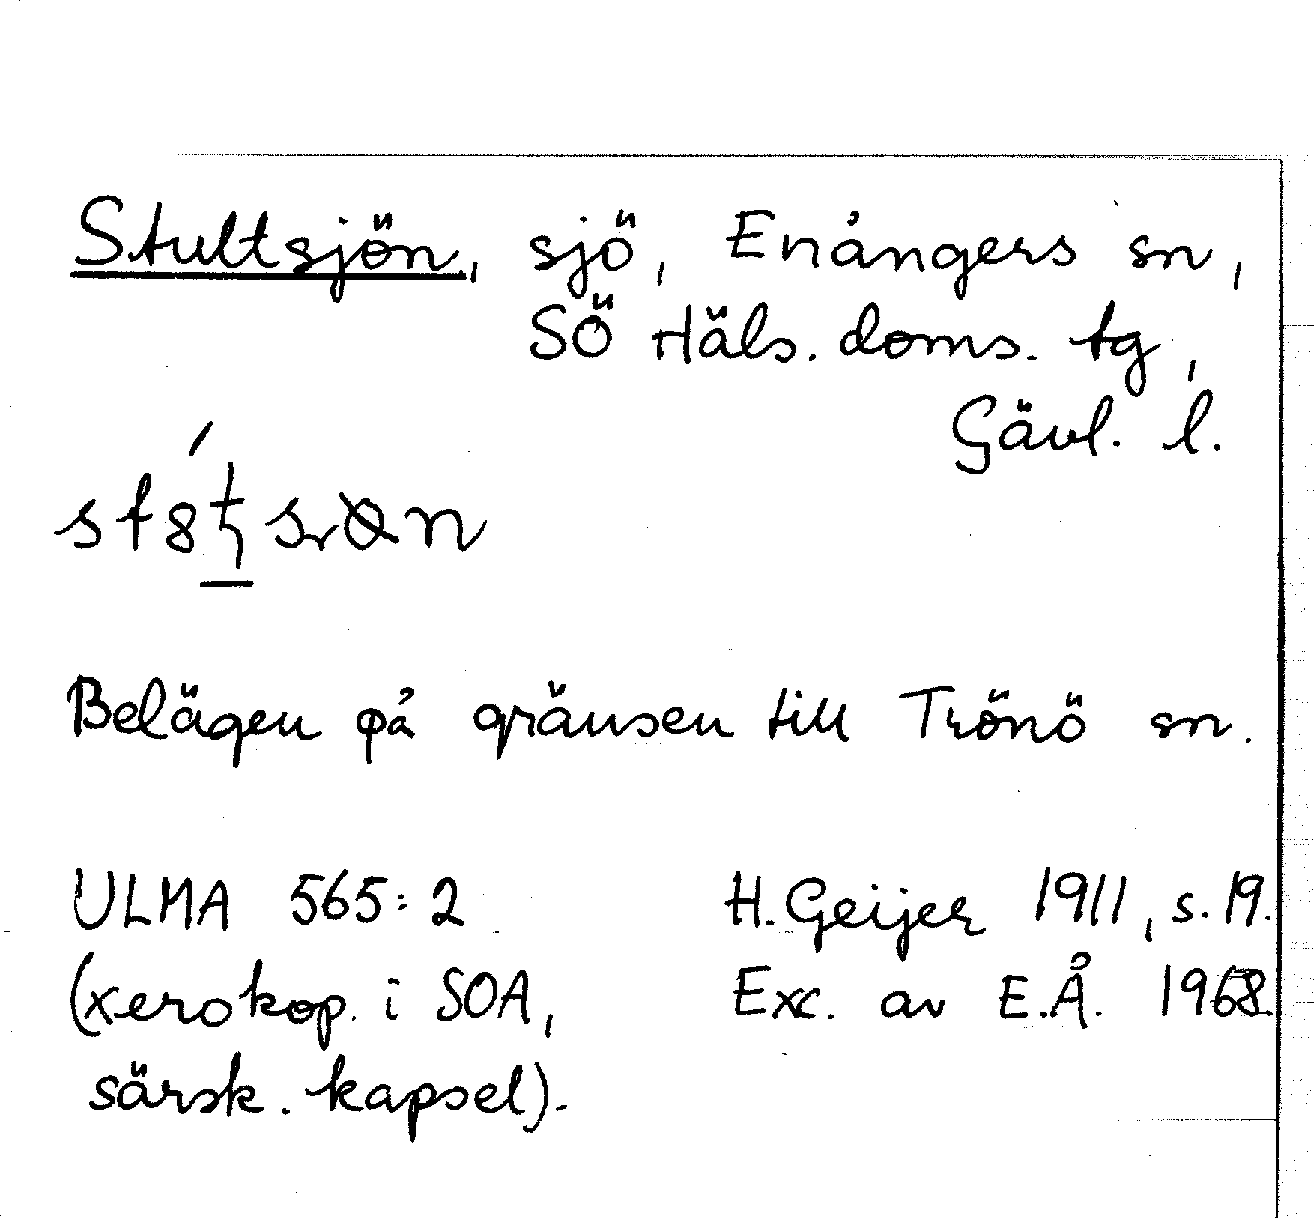 Stultsjön, sjö, Enångers sn,
SÖ Häls. doms. tg,
Gävl. l.
Belägen på gränsen till Trönö sn.
ULMA 565:2 H. Geijer 1911, s. 19.
(xerokop. i SOA, Exc. av E.Å. 1968.
särsk. kapsel).